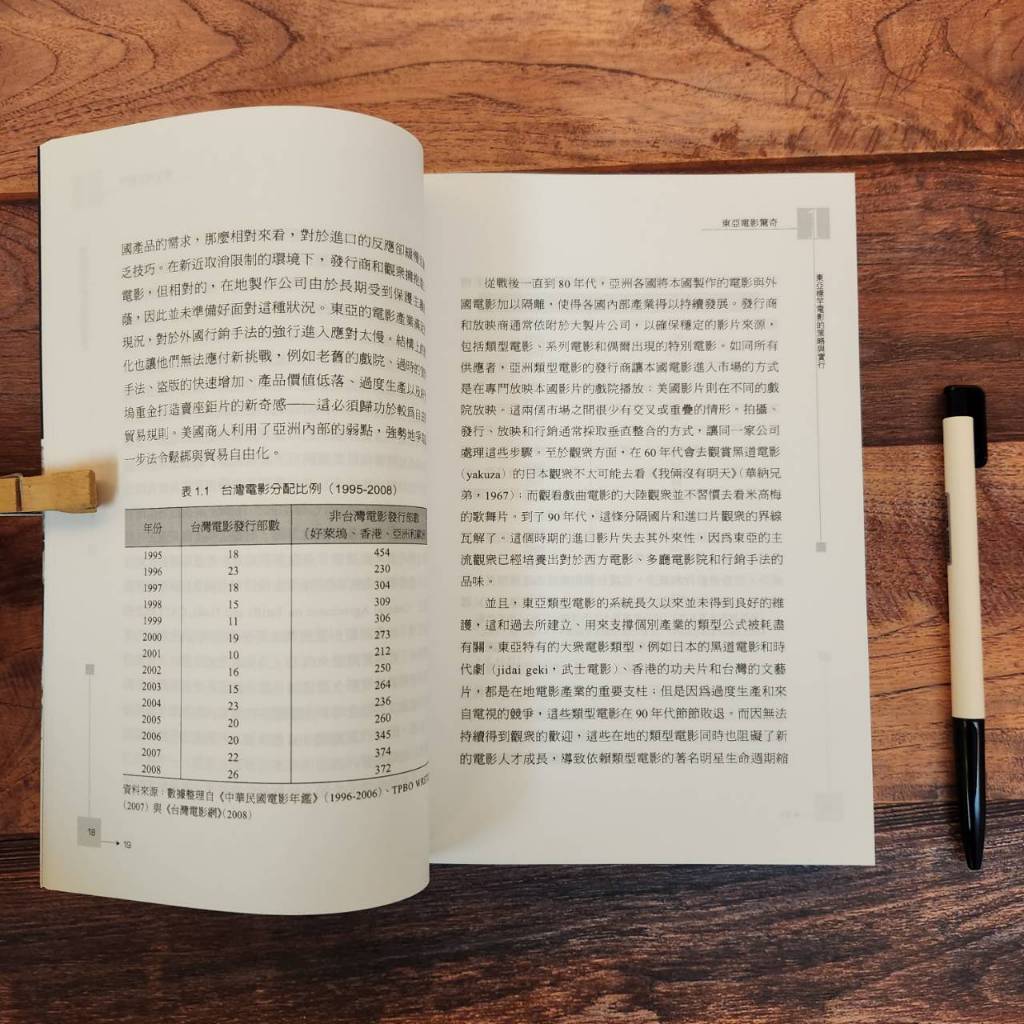 國產品的需求，那麼相對來看，對於進口的反應卻緩慢
乏技巧。在新近取消限制的環境下，發行商和觀眾擁抱
電影，但相對的，在地製作公司由於長期受到保護主義
蔭，因此並未準備好面對這種狀況。東亞的電影產業
現況，對於外國行銷手法的強行進入應對太慢。結構上的
化也讓他們無法應付新挑戰，例如老舊的戲院、過時的
手法、盜版的快速增加、產品價值低落、過度生產以及
塢重金打造賣座鉅片的新奇感——這必須歸功於較為自由
貿易規則。美國商人利用了亞洲內部的弱點，強勢地爭
一步法令鬆綁與貿易自由化。
表 1.1 台灣電影分配比例（1995-2008）
年份 台灣電影發行部數 非台灣電影發行部數
（好萊塢、香港、亞洲和歐洲
1995 18 454
1996 23 230
1997 18 304
1998 15 309
1999 11 306
2000 19 273
2001 10 212
2002 16 250
2003 15 264
2004 23 236
2005 20 260
2006 20 345
2007 22 374
2008 26 372
資料來源：數據整理自《中華民國電影年鑑》（1996-2006）、TPBO WRITE
（2007）與《台灣電影網》（2008）
18
19
東亞電影驚奇
1
東亞標竿電影的策略與實行
從戰後一直到 80 年代，亞洲各國將本國製作的電影與外
國電影加以隔離，使得各國內部產業得以持續發展。發行商
和放映商通常依附於大製片公司，以確保穩定的影片來源，
包括類型電影、系列電影和偶爾出現的特別電影。如同所有
供應者，亞洲類型電影的發行商讓本國電影進入市場的方式
是在專門放映本國影片的戲院播放；美國影片則在不同的戲
院放映。這兩個市場之間很少有交叉或重疊的情形。拍攝、
發行、放映和行銷通常採取垂直整合的方式，讓同一家公司
處理這些步驟。至於觀眾方面，在 60 年代會去觀賞黑道電影
（yakuza）的日本觀眾不大可能去看《我倆沒有明天》（華納兄
弟，1967）；而觀看戲曲電影的大陸觀眾並不習慣去看米高梅
的歌舞片。到了 90 年代，這條分隔國片和進口片觀眾的界線
瓦解了。這個時期的進口影片失去其外來性，因為東亞的主
流觀眾已經培養出對於西方電影、多廳電影院和行銷手法的
品味。
並且，東亞類型電影的系統長久以來並未得到良好的維
護，這和過去所建立、用來支撐個別產業的類型公式被耗盡
有關。東亞特有的大眾電影類型，例如日本的黑道電影和時
代劇（jidai geki，武士電影）、香港的功夫片和台灣的文藝
片，都是在地電影產業的重要支柱；但是因為過度生產和來
自電視的競爭，這些類型電影在 90 年代節節敗退。而因無法
持續得到觀眾的歡迎，這些在地的類型電影同時也阻礙了新
的電影人才成長，導致依賴類型電影的著名明星生命週期縮